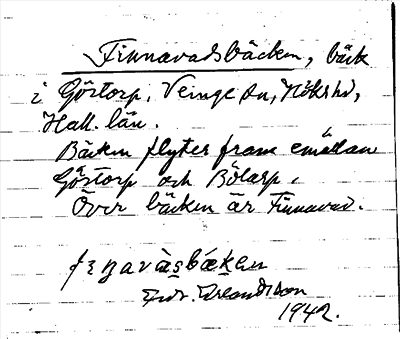 Finnavadsbäcken, bäck
i Göstorp, Veinge sn, Höks hd,
Hall. län.
Bäcken flyter fram emellan
Göstorp och Bölarp.
Över bäcken är Finnavad.
1942.